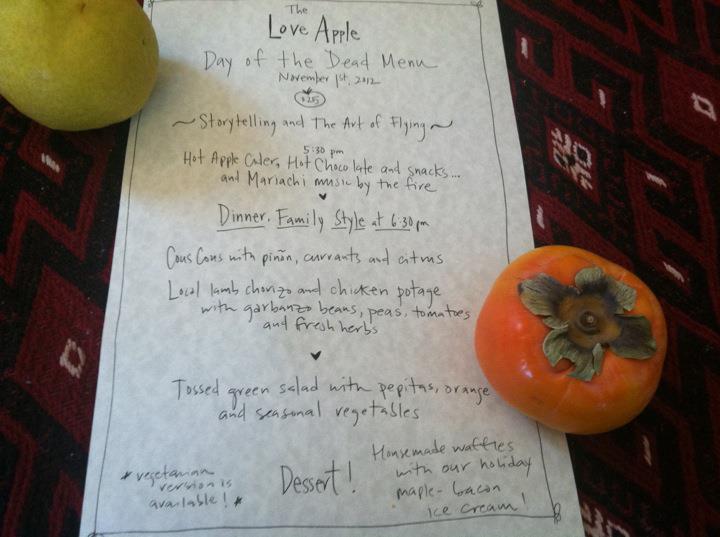 The
Love Apple
Day of the Dead Menu
November 1st, 2012
$25
~ Storytelling and The Art of Flying ~
5:30 pm
Hot Apple Cider, Hot Chocolate and snacks...
and Mariachi music by the fire
Dinner, Family Style at 6:30 pm
Cous Cous with piñon, currants and citrus
Local lamb chorizo and chicken potage
with garbanzo beans, peas, tomatoes
and fresh herbs
Tossed green salad with pepitas, orange
and seasonal vegetables
* vegetarian
version is
available! *
Dessert!
Housemade waffles
with our holiday
maple-bacon
ice cream!